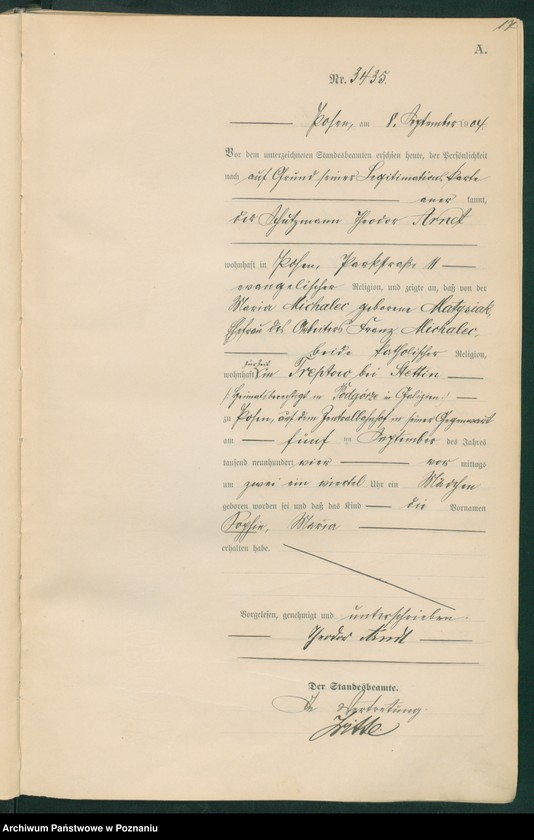 17
A.
Nr. 3435.
Posen, am 8. September 1904.
Vor dem unterzeichneten Standesbeamten erschien heute, der Persönlichkeit
nach auf Grund seiner Legitimations Karte
aner kannt,
der Schutzmann Theodor Arndt
wohnhaft in Posen, Parkstraße 11
evangelischer Religion, und zeigte an, daß von der
Maria Michalec geborene Matysiak,
Ehefrau des Arbeiters Franz Michalec,
beide katholischer Religion,
zur Zeit
wohnhaft in Treptow bei Stettin
(heimatsberechtigt in Podgórze in Galizien)
zu Posen, auf dem Zentralbahnhof in seiner Gegenwart
am fünf ten September des Jahres
tausend neunhundert vier vor mittags
um zwei ein viertel Uhr ein Mädchen
geboren worden sei und daß das Kind die Vornamen
Sophie, Maria
erhalten habe.
Vorgelesen, genehmigt und unterschrieben
Theodor Arndt
Der Standesbeamte.
In Vertretung.
Witte
Archiwum Państwowe w Poznaniu